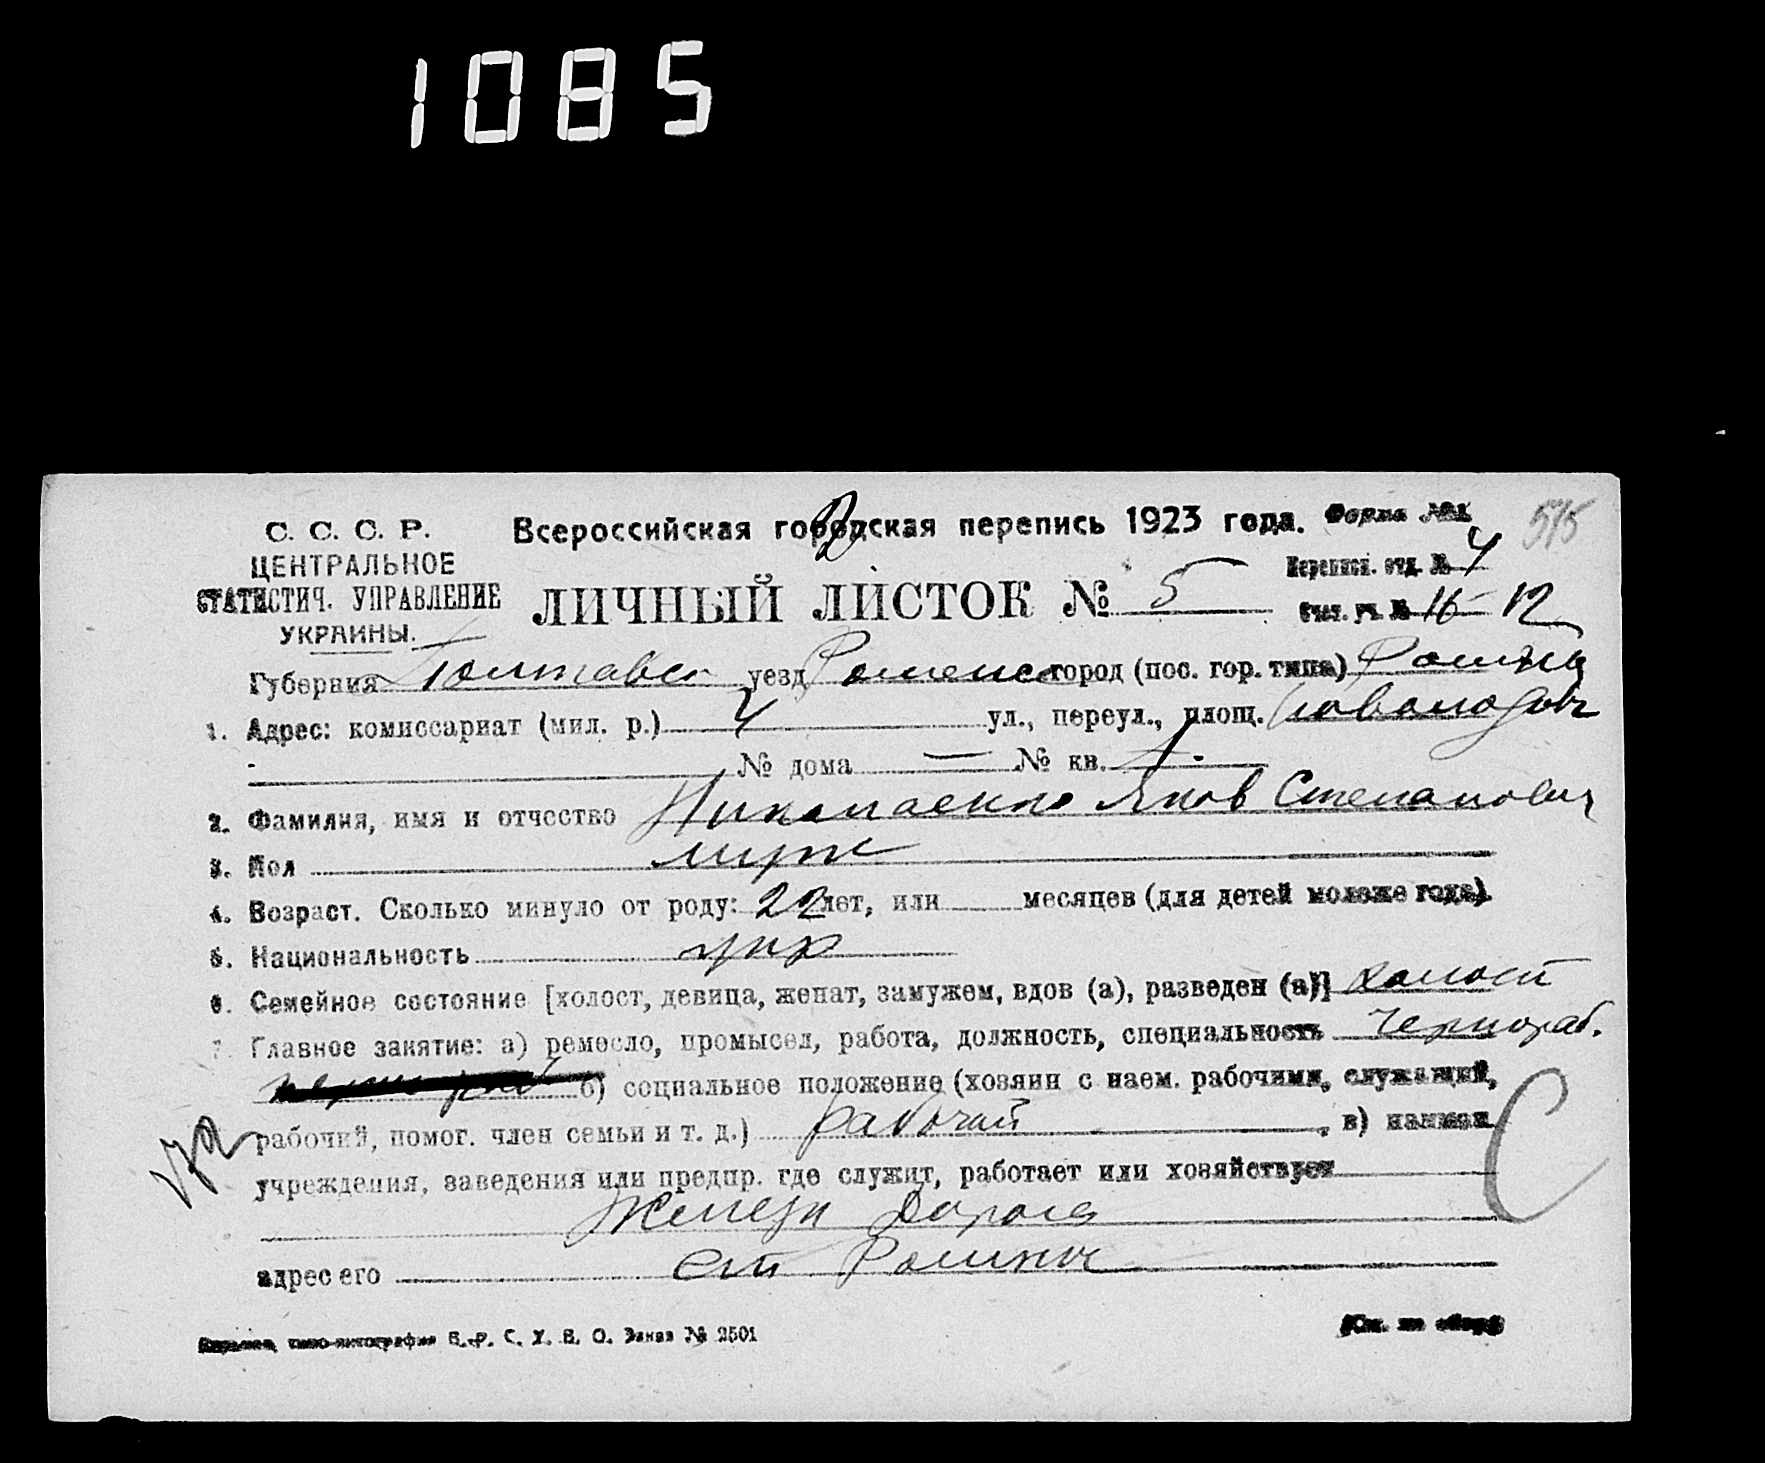 1085
С. С. С. Р.
ЦЕНТРАЛЬНОЕ
СТАТИСТИЧ. УПРАВЛЕНИЕ
УКРАИНЫ.
Всероссийская городская перепись 1923 года.
Форма №1
515
ЛИЧНЫЙ ЛИСТОК № 5
Переписн. отд. № 4
Счет. уч. № 16 12
Губерния Полтавск уезд Роменс город (пос. гор. типа) Ромны
1. Адрес: комиссариат (мил. р.) 4 ул., переул., площ.
№ дома — № кв. 1.
2. Фамилия, имя и отчество Николаенко Яков Степанович
3. Пол муж
4. Возраст. Сколько минуло от роду: 22 лет, или месяцев (для детей моложе года).
5. Национальность укр
6. Семейное состояние [холост, девица, женат, замужем, вдов (а), разведен (а)] холост
7. Главное занятие: а) ремесло, промысел, работа, должность, специальность Чернораб.
б) социальное положение (хозяин с наем. рабочими, служащий,
рабочий, помог. член семьи и т. д.) рабочий, в) наимен.
учреждения, заведения или предпр. где служит, работает или хозяйствует
Железн Дорога
адрес его ст Ромны
типо-литография В.-Р. С. Х. В. О. Заказ № 2501
(См. на обор.)